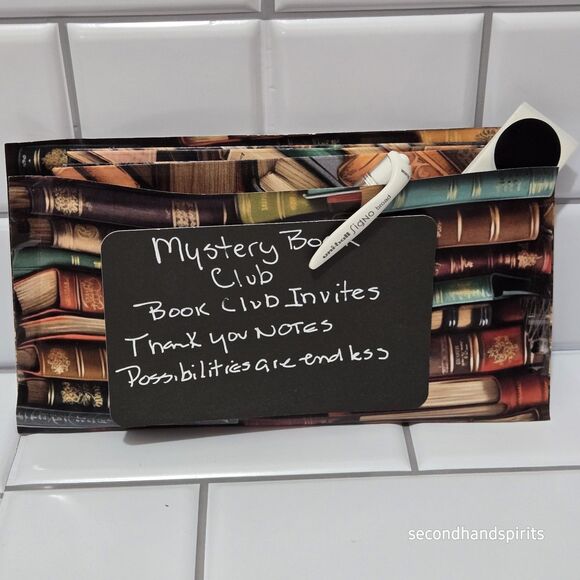 Mystery Book
Club
Book Club Invites
Thank you Notes
Possibilities are endless
uni-ball SIGNO broad
secondhandspirits